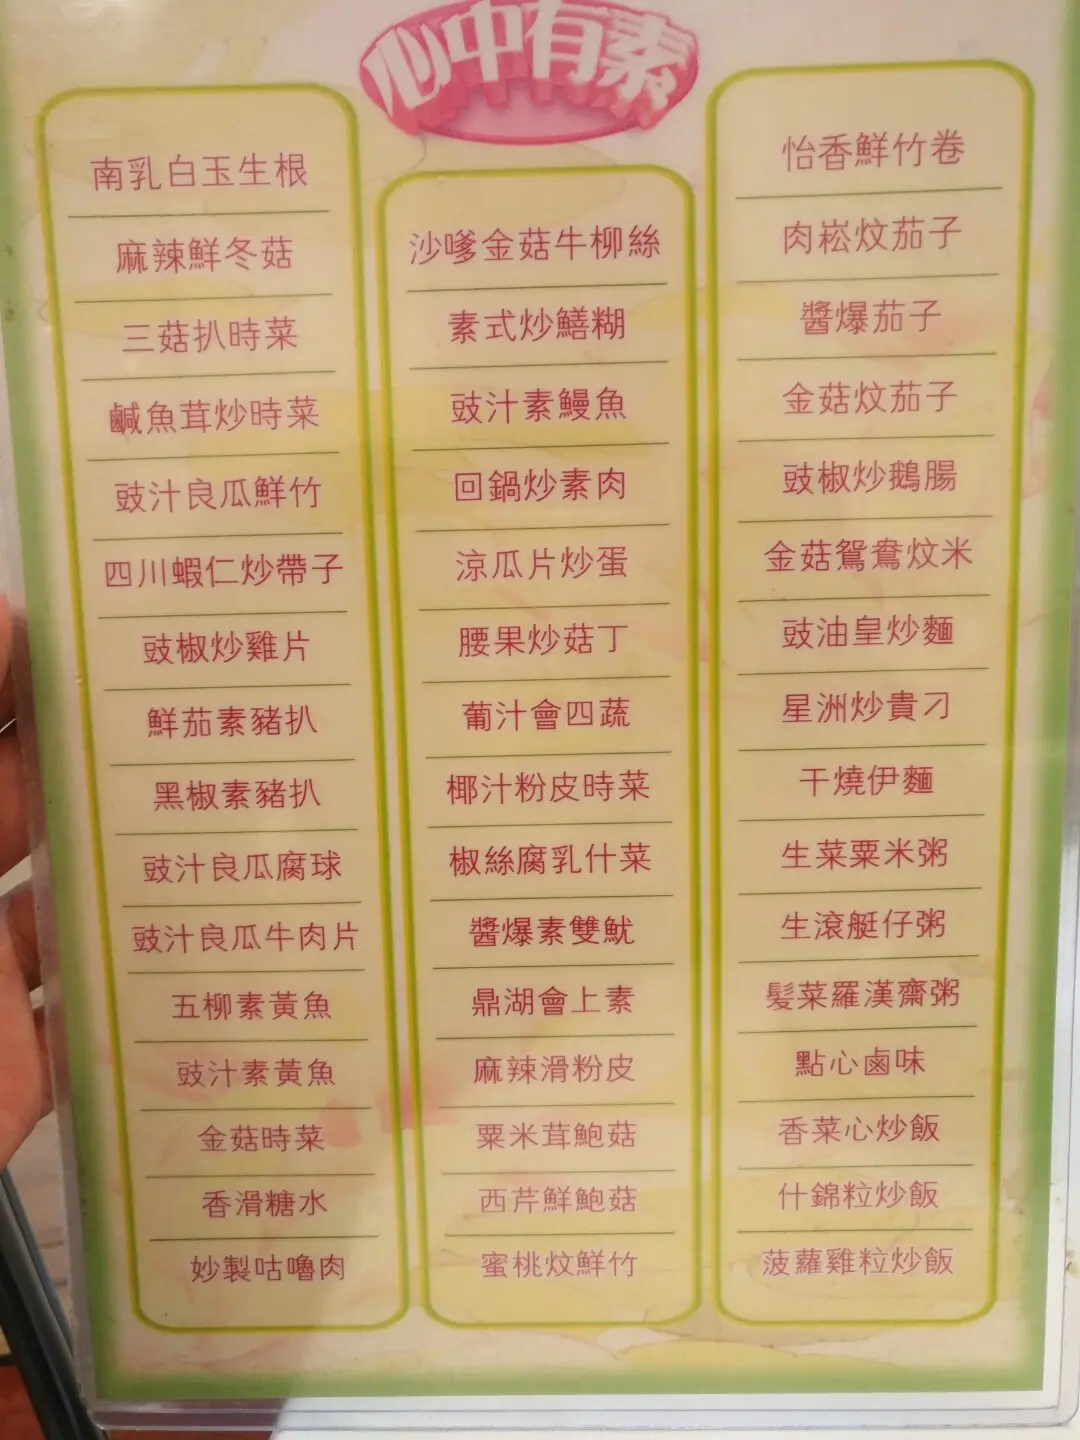 心中有素
南乳白玉生根
麻辣鮮冬菇
三菇扒時菜
鹹魚茸炒時菜
豉汁良瓜鮮竹
四川蝦仁炒帶子
豉椒炒雞片
鮮茄素豬扒
黑椒素豬扒
豉汁良瓜腐球
豉汁良瓜牛肉片
五柳素黃魚
豉汁素黃魚
金菇時菜
香滑糖水
妙製咕嚕肉
沙嗲金菇牛柳絲
素式炒鱔糊
豉汁素鰻魚
回鍋炒素肉
涼瓜片炒蛋
腰果炒菇丁
葡汁會四蔬
椰汁粉皮時菜
椒絲腐乳什菜
醬爆素雙魷
鼎湖會上素
麻辣滑粉皮
粟米茸鮑菇
西芹鮮鮑菇
蜜桃炆鮮竹
怡香鮮竹卷
肉崧炆茄子
醬爆茄子
金菇炆茄子
豉椒炒鵝腸
金菇鴛鴦炆米
豉油皇炒麵
星洲炒貴刁
干燒伊麵
生菜粟米粥
生滾艇仔粥
髮菜羅漢齋粥
點心鹵味
香菜心炒飯
什錦粒炒飯
菠蘿雞粒炒飯